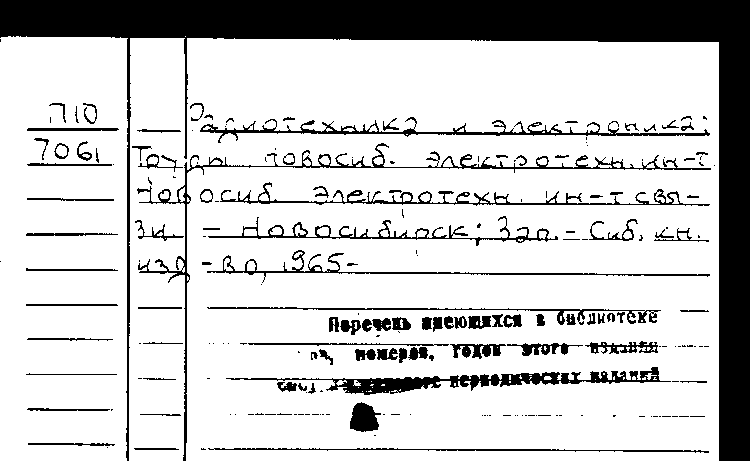 П10
7061
Радиотехника и электроника:
Труды Новосиб. электротехн. ин-т
Новосиб. электротехн. ин-т свя-
зи. - Новосибирск; Зап.- Сиб. кн.
изд-во, 1965-
Перечень имеющихся в библиотеке
номеров, годов этого издания
периодических изданий